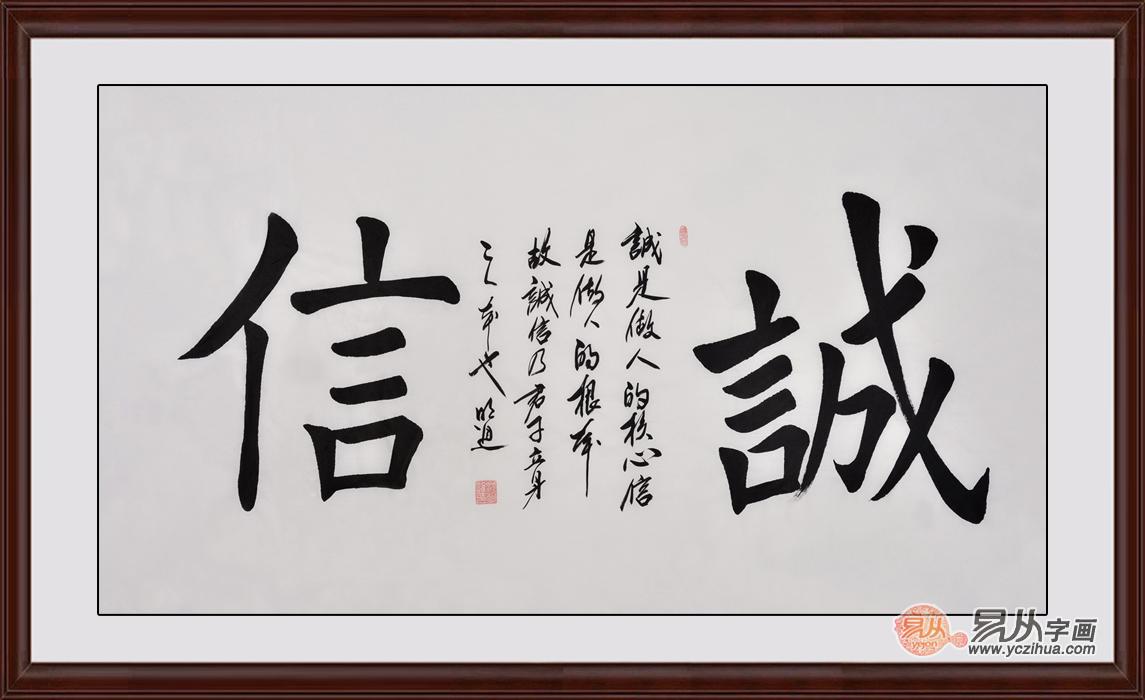 誠
誠是做人的核心信
是做人的根本
故誠信乃君子立身
之本也 明迪
信
易从
yicon
易从字画
www.yczihua.com